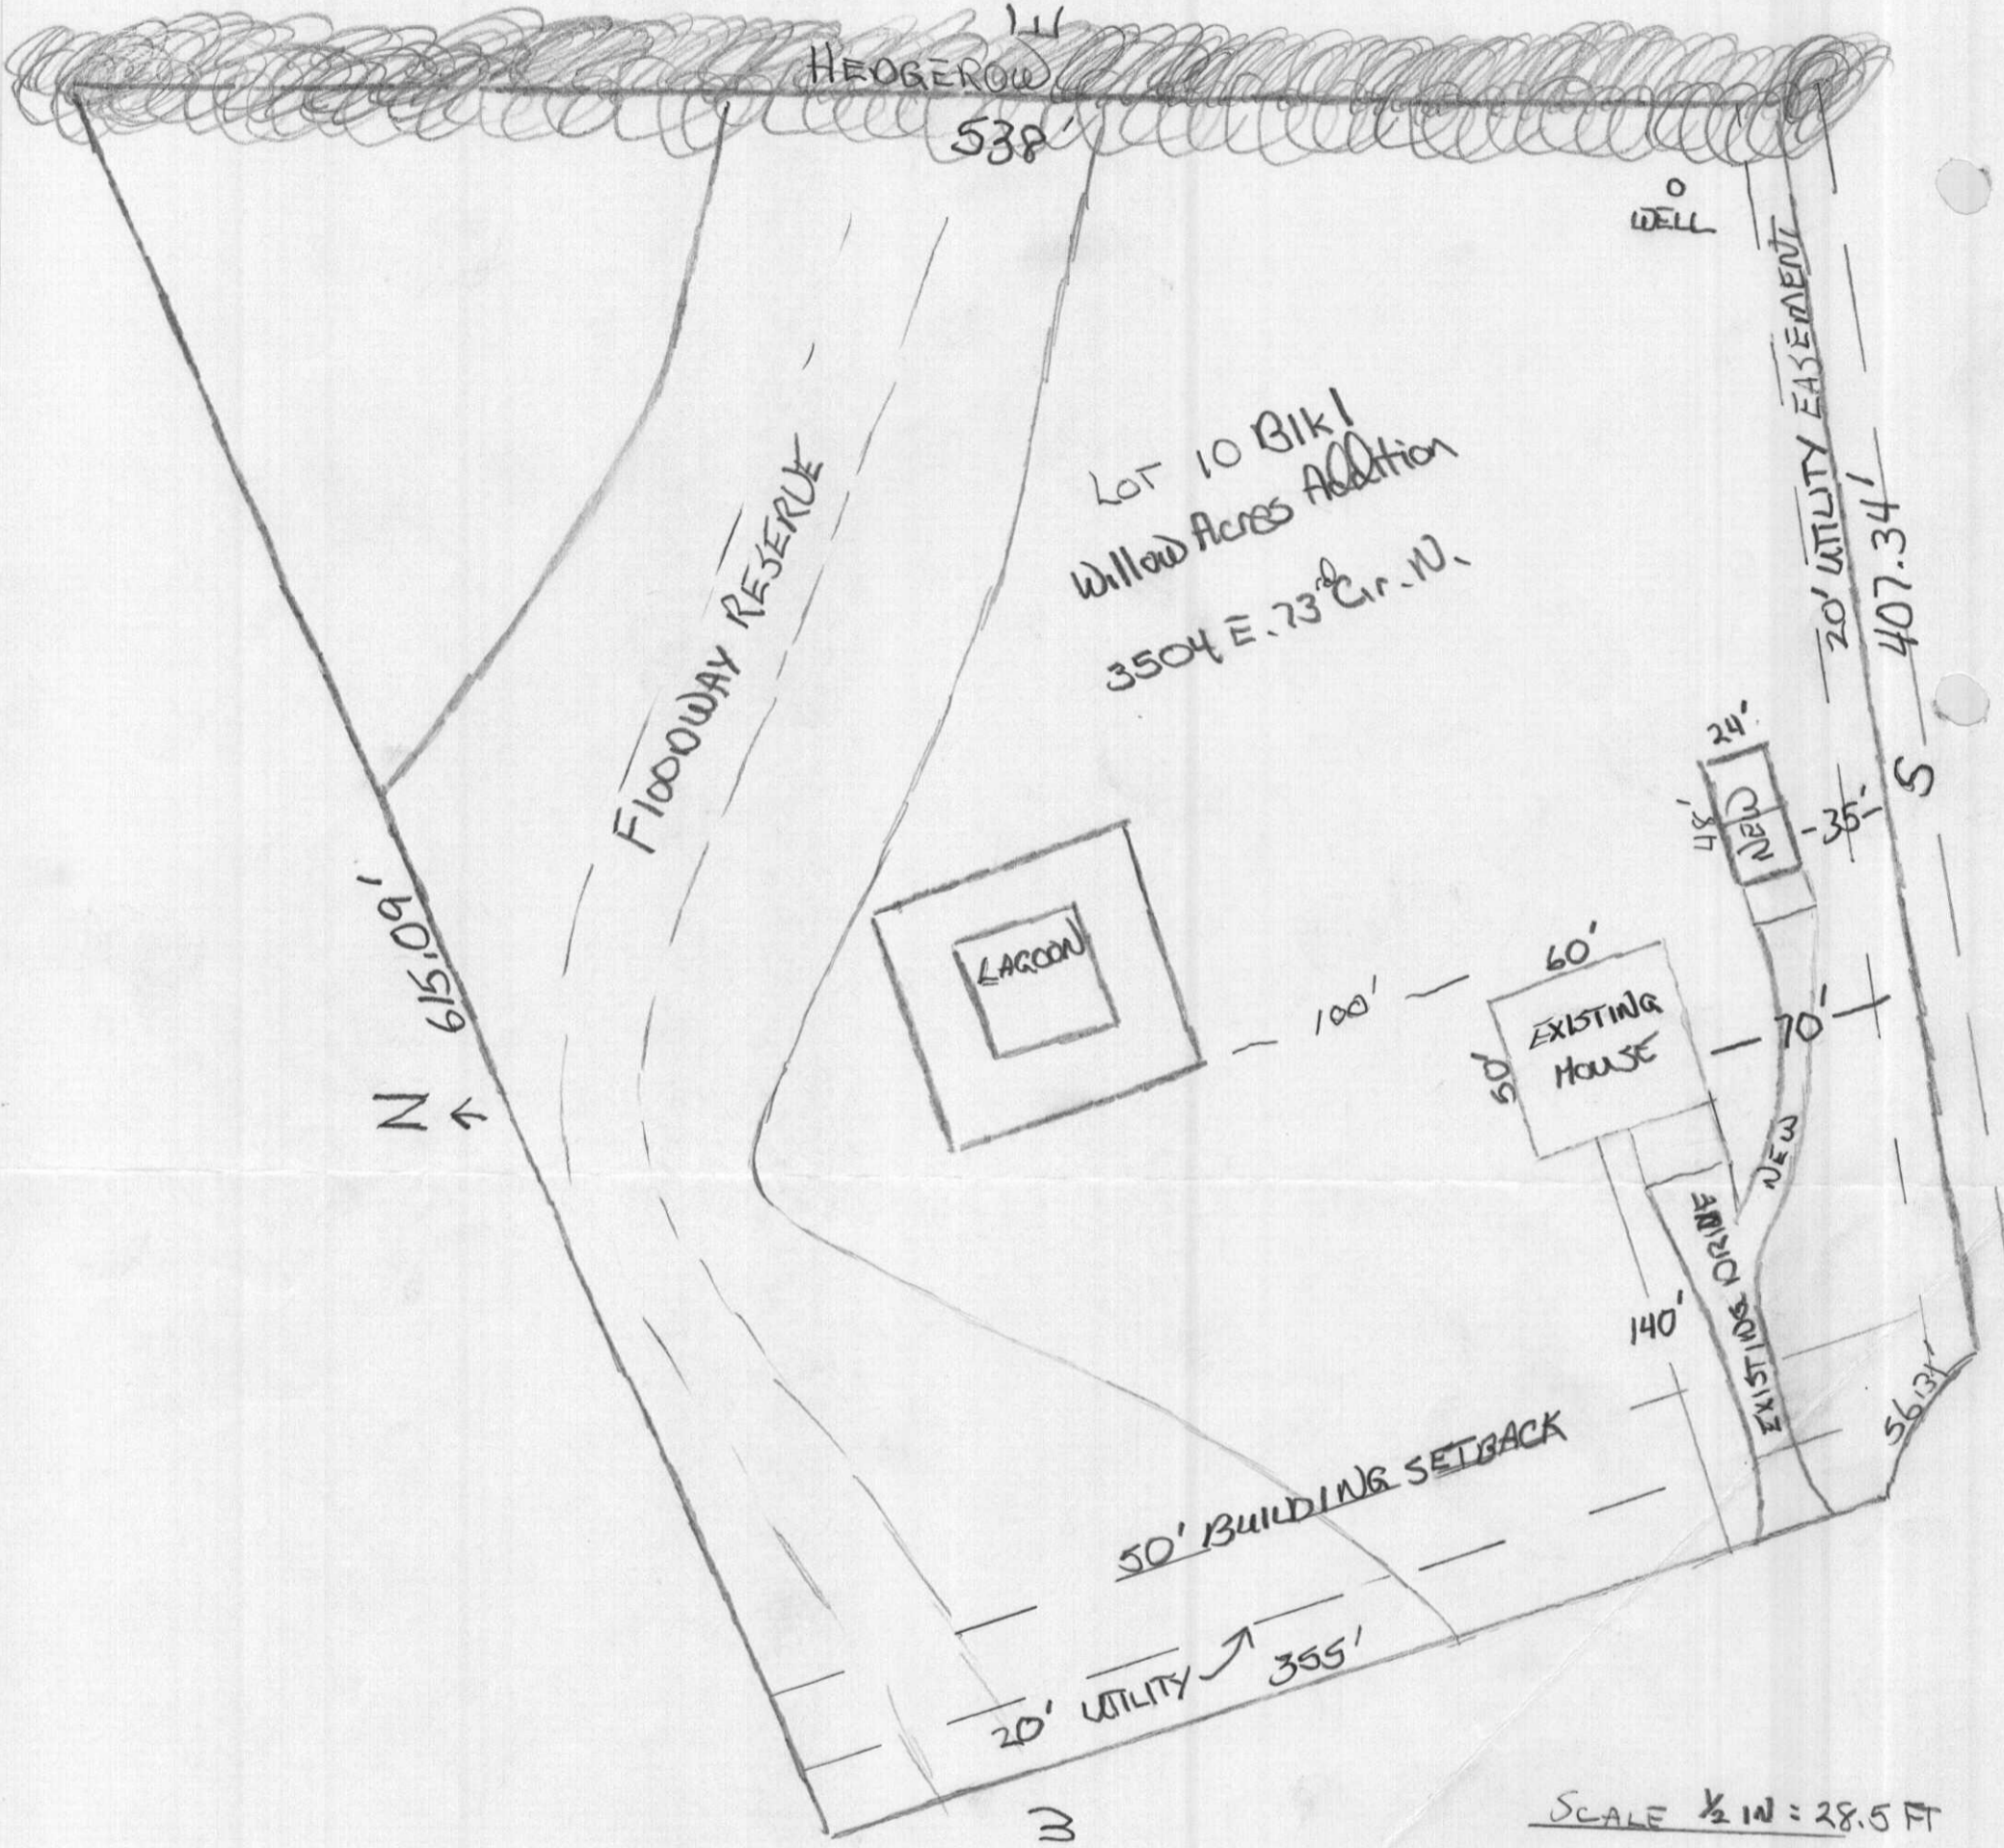 E
HEDGEROW
538'
WELL
20' UTILITY EASEMENT
407.34'
S
Lot 10 Blk 1
Willow Acres Addition
3504 E. 73rd Cir. N.
FLOODWAY RESERVE
24'
48'
NEW
35'
615.09'
N ↑
LAGOON
100'
60'
50'
EXISTING
HOUSE
70'
NEW
EXISTING DRIVE
140'
56.31'
50' BUILDING SETBACK
20' UTILITY
355'
W
SCALE ½ IN = 28.5 FT